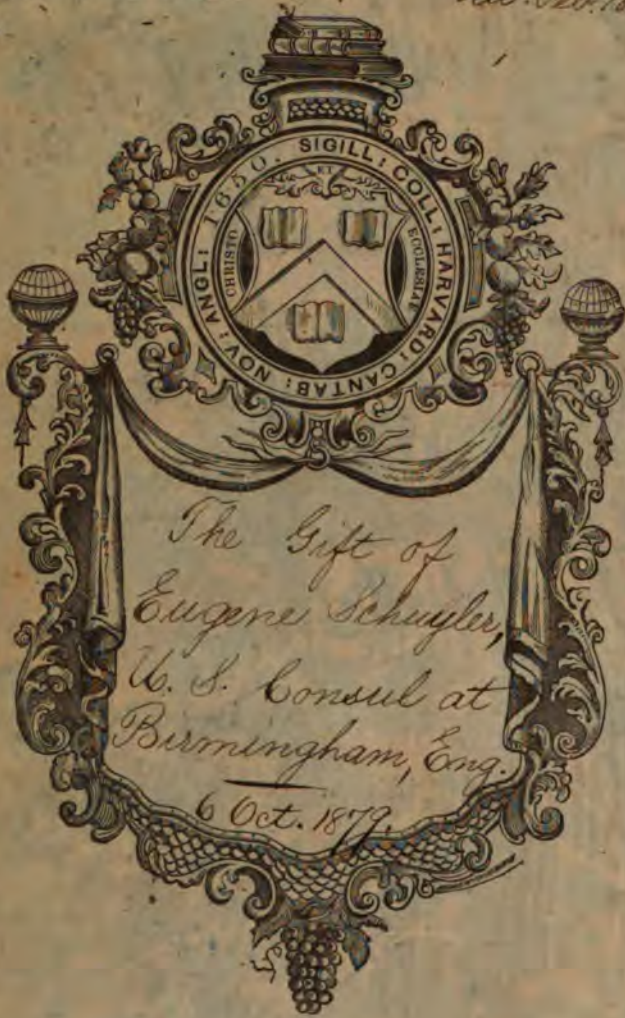 SIGILL: COLL: HARVARD: CANTAB: NOV: ANGL: 1650.
ET
CHRISTO
ECCLESIAE
The Gift of
Eugene Schuyler,
U. S. Consul at
Birmingham, Eng.
6 Oct. 1879.